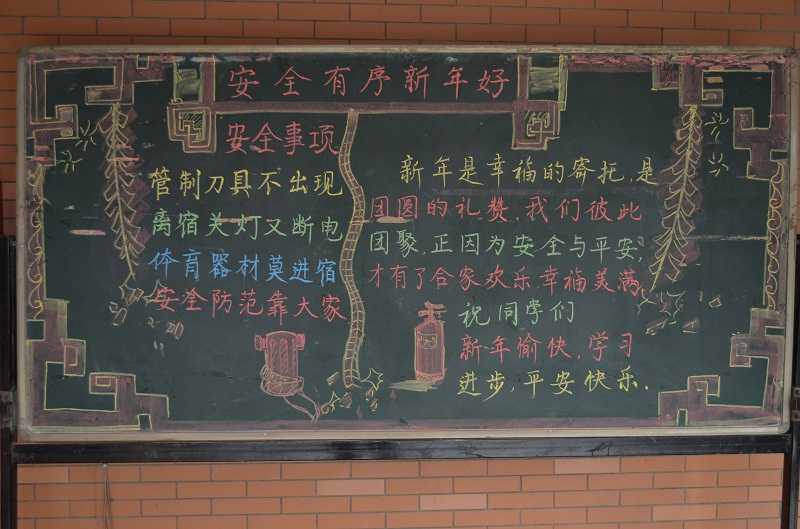 安全有序新年好
安全事项
管制刀具不出现
离宿关灯又断电
体育器材莫进宿
安全防范靠大家
新年是幸福的寄托,是
团圆的礼赞,我们彼此
团聚,正因为安全与平安,
才有了合家欢乐幸福美满,
祝同学们
新年愉快,学习
进步,平安快乐.